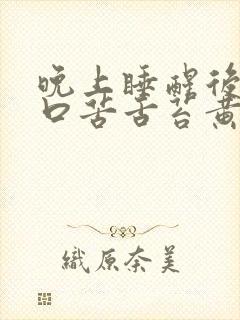 晚上睡醒後
口苦舌苔黃
織原奈美